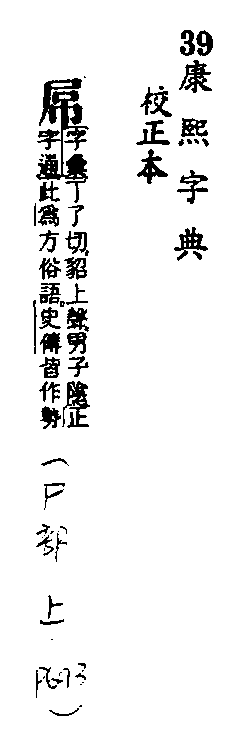 39康熙字典
校正本
屌
字彙丁了切貂上聲男子陰正
字通此為方俗語史傳皆作勢
(尸部上